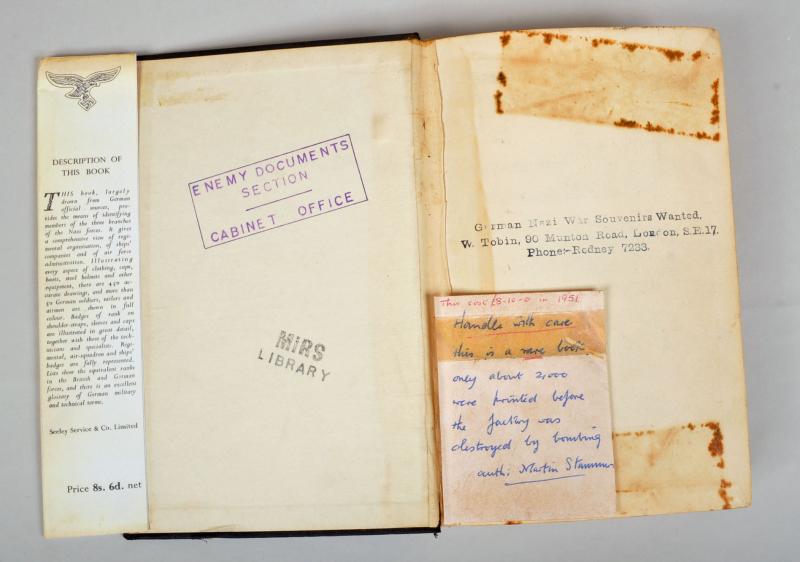 DESCRIPTION OF
THIS BOOK
THIS book, largely
drawn from German
official sources, pro-
vides the means of identifying
members of the three branches
of the Nazi forces. It gives
a comprehensive view of regi-
mental organisation, of ships'
companies and of air force
administration. Illustrating
every aspect of clothing, caps,
boots, steel helmets and other
equipment, there are 450 ac-
curate drawings, and more than
50 German soldiers, sailors and
airmen are shown in full
colour. Badges of rank on
shoulder-straps, sleeves and caps
are illustrated in great detail,
together with those of the tech-
nicians and specialists. Regi-
mental, air-squadron and ships'
badges are fully represented.
Lists show the equivalent ranks
in the British and German
forces, and there is an excellent
glossary of German military
and technical terms.
Seeley Service & Co. Limited
Price 8s. 6d. net
ENEMY DOCUMENTS
SECTION
CABINET OFFICE
MIRS
LIBRARY
German Nazi War Souvenirs Wanted,
W. Tobin, 90 Munton Road, London, S.E.17.
Phone:-Rodney 7233.
This cost £8-10-0 in 1951
Handle with care
this is a rare book
only about 2,000
were printed before
the factory was
destroyed by bombing
auth: Martin